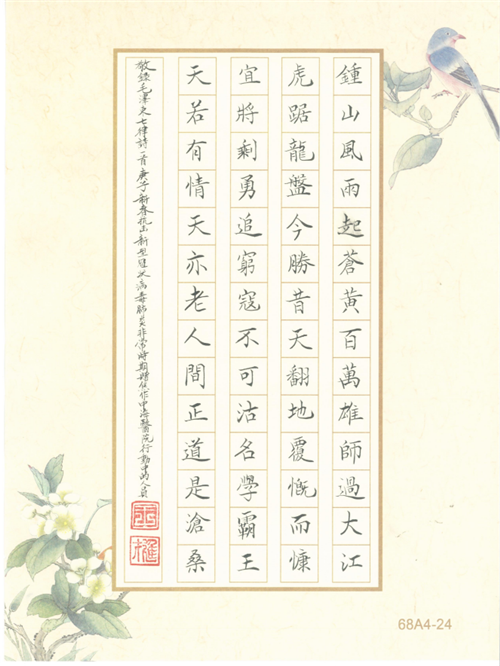 鍾山風雨起蒼黃百萬雄師過大江
虎踞龍盤今勝昔天翻地覆慨而慷
宜將剩勇追窮寇不可沽名學霸王
天若有情天亦老人間正道是滄桑
敬錄毛澤东七律詩一首庚子新春抗击新型冠狀病毒肺炎非常時期贈作中海醫院行動中的人員
68A4-24